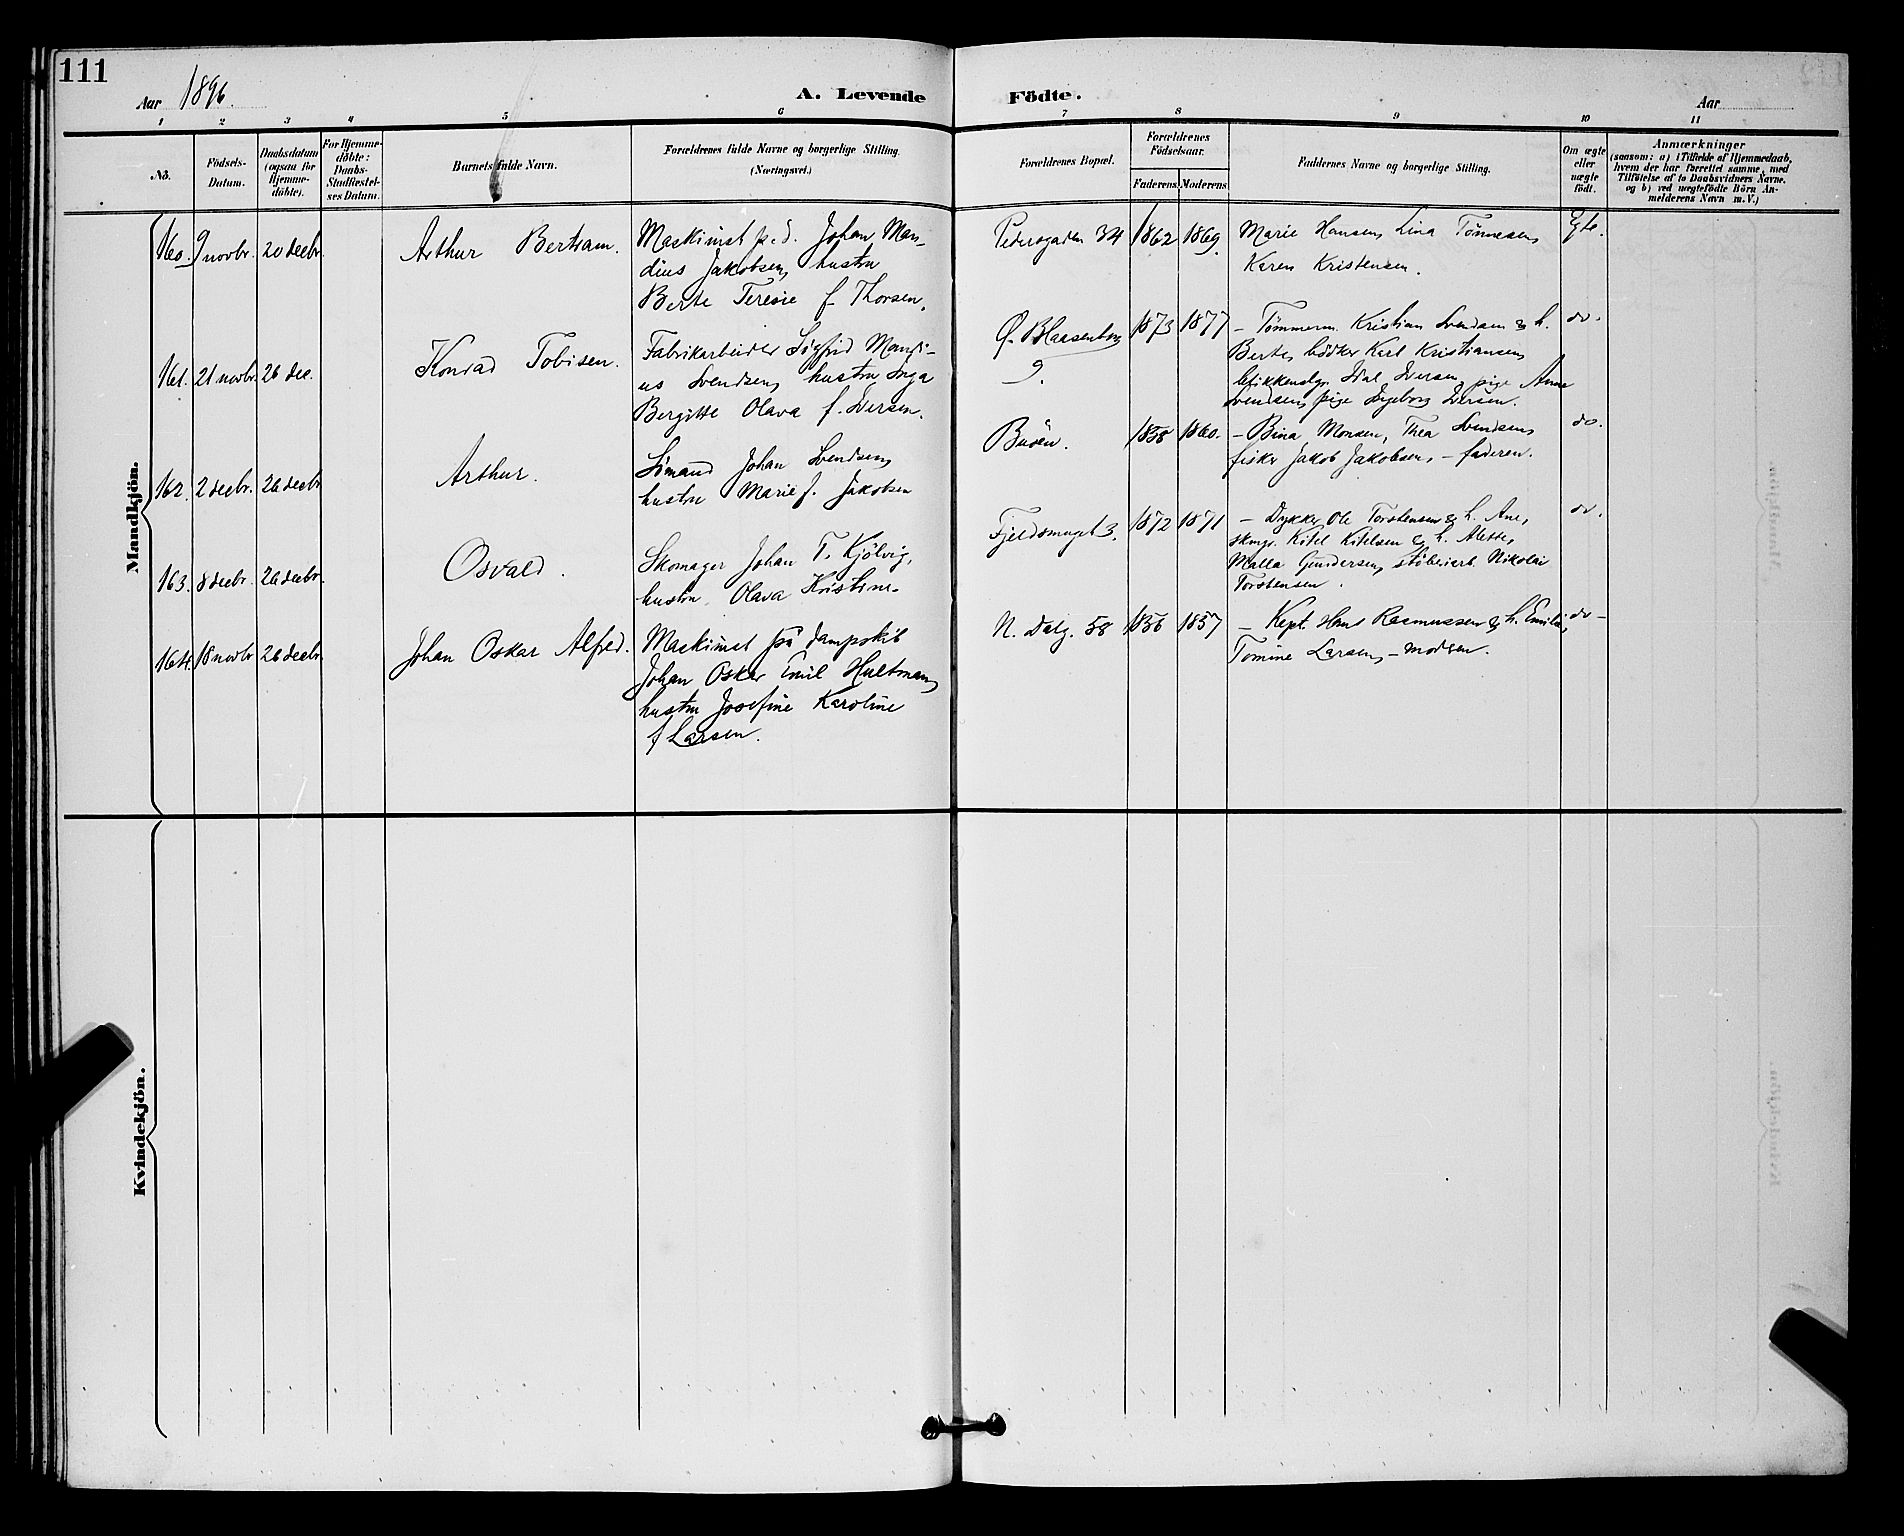 111
Aar 1896.
A. Levende Födte.
Aar
1 2 3 4 5 6 7 8 9 10 11
No.
Födsels-Datum.
Daabsdatum (ogsaa for Hjemme-döbte).
For Hjemme-döbte: Daabs-Stadfæstel-ses Datum.
Barnets fulde Navn.
Forældrenes fulde Navne og borgerlige Stilling.
(Næringsvei.)
Forældrenes Bopæl.
Forældrenes Födselsaar.
Faderens. Moderens.
Faddernes Navne og borgerlige Stilling.
Om ægte eller uægte födt.
Anmærkninger
(saasom: a) i Tilfælde af Hjemmedaab,
hvem der har forrettet samme, med
Tilföielse af to Daabsvidners Navne,
og b) ved uægtefödte Börn An-
melderens Navn m. V.)
Mandkjön.
160. 9 novbr. 20 decbr. Arthur Bertram.
Maskinist p.d. Johan Man-
dius Jakobsen, hustru
Berte Teresie f. Thorsen.
Pedersgaden 34 1862 1869.
Marie Hansen, Lina Tönnesen,
Karen Kristensen.
Egte.
161. 21 novbr. 26 dec. Konrad Tobisen.
Fabrikarbeider Sigfrid Mandi-
us Svendsen, hustru Inga
Bergitte Olava f. Iversen.
Ø. Blaasenborg
9.
1873 1877
– Tömmerm. Kristian Svendsen & h.
Berte, bödker Karl Kristiansen,
blikkenslgr. Idal Iversen, pige Anne
Svendsen, pige Ingeborg Iversen.
do.
162. 2 decbr. 26 decbr. Arthur.
Sömand Johan Svendsen,
hustru Marie f. Jakobsen
Buöen. 1858 1860.
– Bina Monsen, Thea Svendsen,
fisker Jakob Jakobsen, – faderen.
do.
163. 8 decbr. 26 decbr. Osvald.
Skomager Johan T. Kjölvig,
hustru Olava Kristine.
Fjeldsmuget 3. 1872 1871
– Dykker Ole Torstensen & h. Ane,
skmgr. Kitel Kitelsen & h. Alette,
Malla Gundersen, stöberiarb. Nikolai
Torstensen.
do.
164. 18 novbr 26 decbr. Johan Oskar Alfred.
Maskinist på dampskib
Johan Oskar Emil Hultman,
hustru Josefine Karoline
f. Larsen.
N. Dalg. 58 1856 1857
– Kapt. Hans Rasmussen & h. Emilie,
Tomine Larsen, – modren.
do –
Kvindekjön.